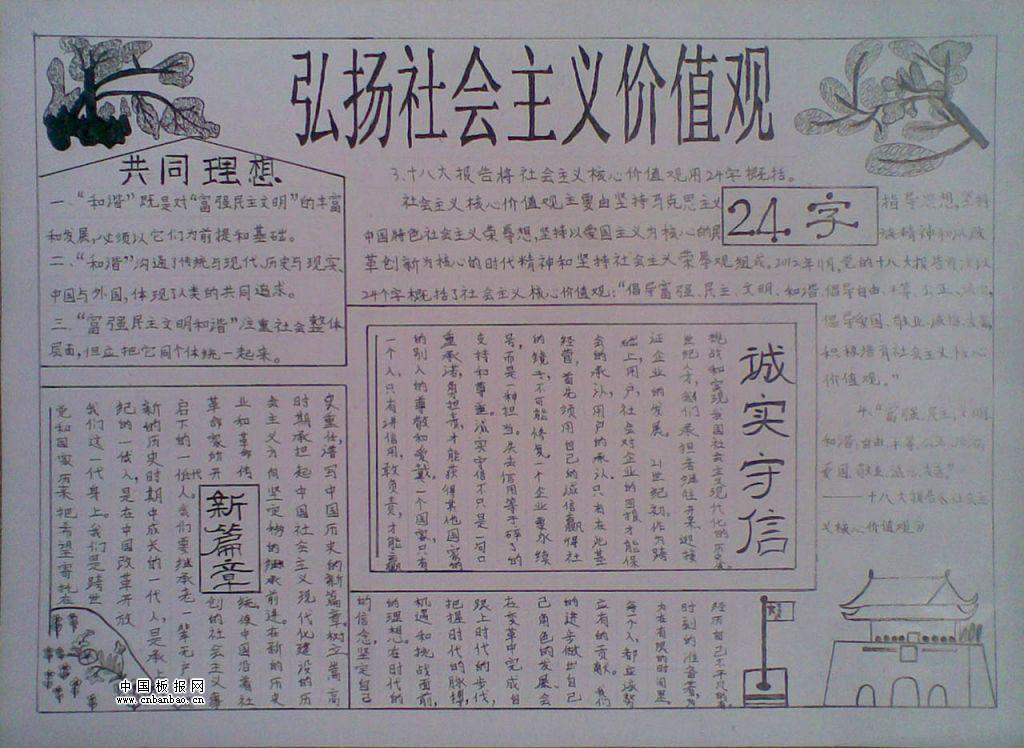 弘扬社会主义价值观
共同理想
一、“和谐”既是对“富强民主文明”的丰富
和发展,必须以它们为前提和基础。
二、“和谐”沟通了传统与现代、历史与现实、
中国与外国,体现了人类的共同追求。
三、“富强民主文明和谐”注重社会整体
层面,但应把它同个体统一起来。
3.十八大报告将社会主义核心价值观用24字概括。
社会主义核心价值观主要由坚持马克思主义
指导思想,坚持
24.字
中国特色社会主义荣辱想,坚持以爱国主义为核心的民
族精神和以改
革创新为核心的时代精神和坚持社会主义荣辱观组成。2012年11月,党的十八大报告首次以
24个字概括了社会主义核心价值观:“倡导富强、民主、文明、和谐,倡导自由、平等、公正、法治,
倡导爱国、敬业、诚信、友善,
积极培育社会主义核心
价值观。”
4.“富强、民主、文明、
和谐,自由、平等、公正、法治,
爱国、敬业、诚信、友善”
——十八大报告《社会主
义核心价值观》
诚实守信
挑战和实现我国社会主义现代化的历史
世纪人才,我们承担者继往开来,迎接
证企业的发展。21世纪
础上,用户、社会对企业的回报才能保
会的承认,用户的承认。只有在此基
经营,首先须用自己的诚信赢得社
的镜子,不可能修复,一个企业要永续
号,而是一种担当。失去信用等于碎了的
支持和尊重。诚实守信不只是一句口
重承诺,勇担责,才能获得其他国家的
的别人的尊敬和爱戴。一个国家,只有
一个人,只有讲信用,敢负责,才能赢
新篇章
经历自己不平凡的
时刻的准备着,为
为在有限的时间里,
每一个人,都应该努
应有的贡献。我们
的进步做出自己
己角色的发展、会
在变革中完成自
跟上时代的步伐,
把握时代的脉搏,
机遇和挑战面前,
的理想。在时代的
的信念,坚定自己
史重任,谱写中国历史的新篇章。树立崇高
时期承担起中国社会主义现代化建设的历
会主义方向坚定的继承前进。在新的历史
业和革命传统,使中国沿着社
革命家所开创的社会主义事
启下的一代人。我们要继承老一辈无产
新的历史时期中成长的一代人,是承
纪的一代人,是在中国改革开放
我们这一代身上。我们是跨世
党和国家历来把希望寄托在
中国板报网
www.cnbanbao.cn